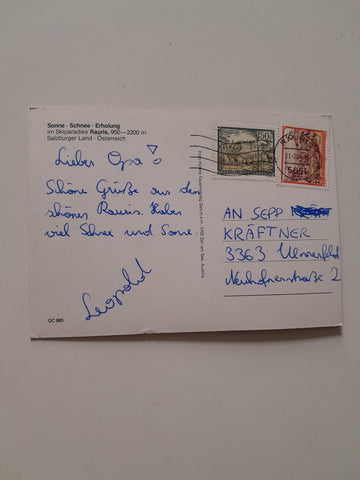 Sonne · Schnee · Erholung
im Skiparadies Rauris, 950—2200 m
Salzburger Land · Österreich
Lieber Opa!
Schöne Grüße aus dem
schönen Rauris. Haben
viel Schnee und Sonne.
Leopold
AN SEPP
KRÄFTNER
3363 Ulmerfeld
Neuhofnerstraße 2
OC 985